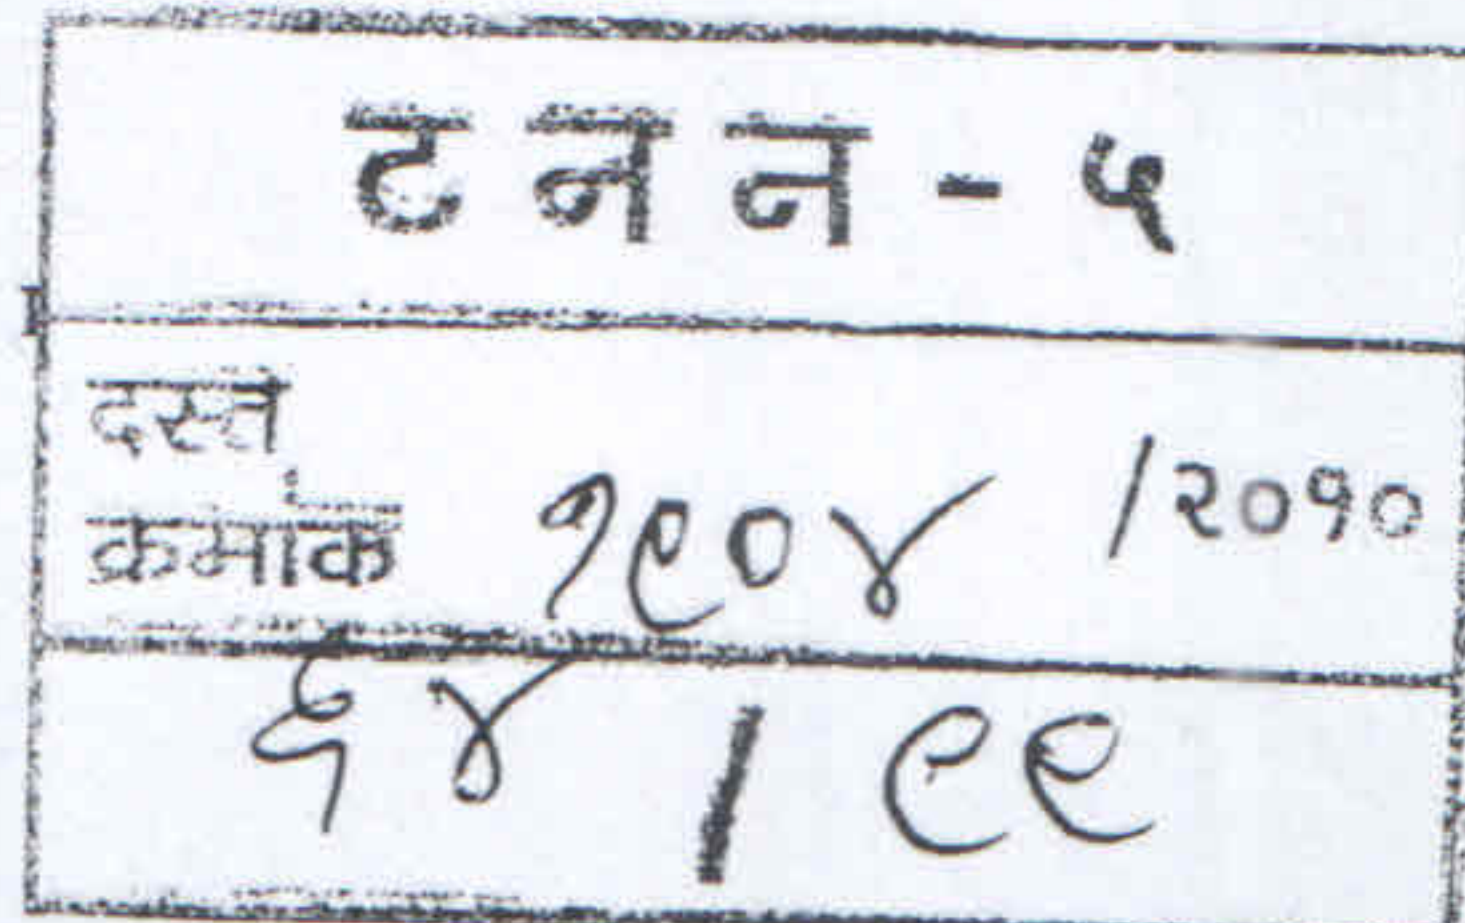 ट न न - ५
दस्त
क्रमांक १९०४ /२०१०
६४ / ९९